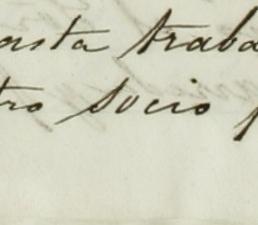 asta traba
tro socio p